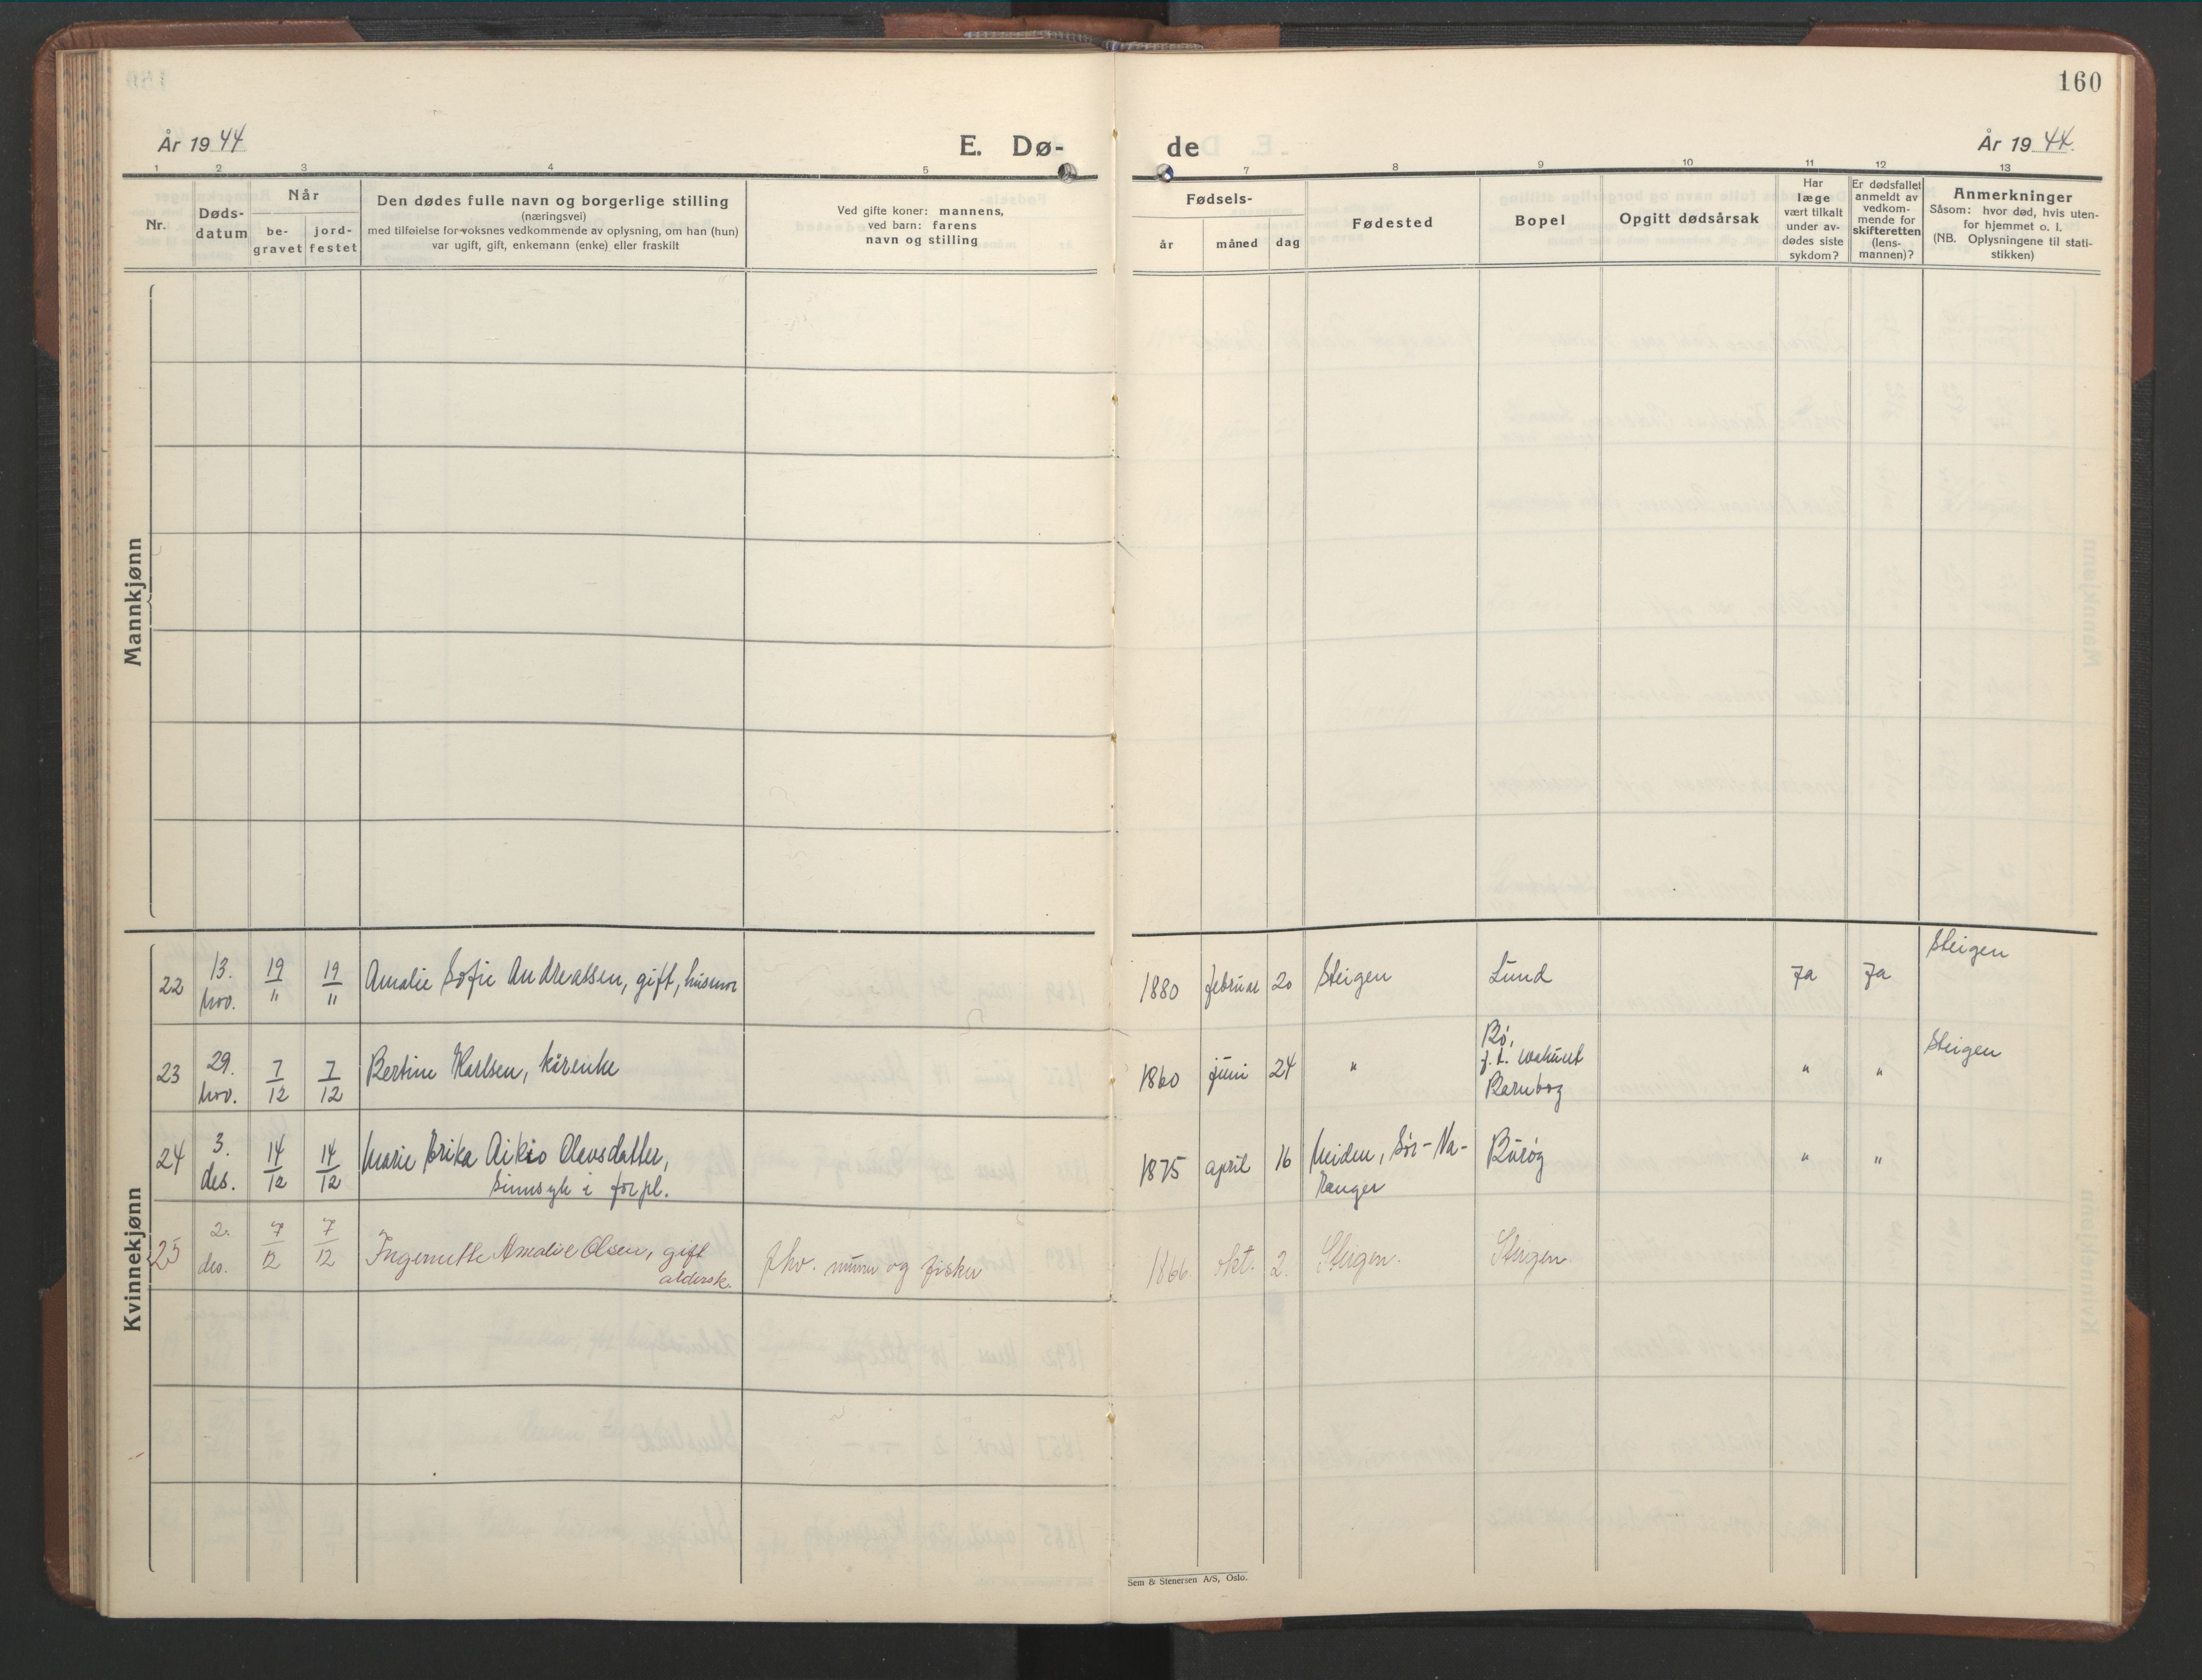 160
År 1944
E. Dø-
de
År 1944.
1 2 3 4 5 7 8 9 10 11 12 13
Nr.
Døds-
datum
Når
be-
gravet
jord-
festet
Den dødes fulle navn og borgerlige stilling
(næringsvei)
med tilføielse for voksnes vedkommende av oplysning, om han (hun)
var ugift, gift, enkemann (enke) eller fraskilt
Ved gifte koner: mannens,
ved barn: farens
navn og stilling
Fødsels-
år
måned
dag
Fødested
Bopel
Opgitt dødsårsak
Har
læge
vært tilkalt
under av-
dødes siste
sykdom?
Er dødsfallet
anmeldt av
vedkom-
mende for
skifteretten
(lens-
mannen)?
Anmerkninger
Såsom: hvor død, hvis uten-
for hjemmet o. l.
(NB. Oplysningene til stati-
stikken)
Mannkjønn
Kvinnekjønn
22 13. nov. 19/11 19/11 Amalie Sofie Andreassen, gift, husmor 1880 februar 20 Steigen Lund Ja Ja Steigen
23 29. nov. 7/12 7/12 Bertine Karlsen, kårenke 1860 juni 24 " Bø, " " Steigen
f. t.
24 3. des. 14/12 14/12 Marie Erika Aikio Olavsdatter, 1875 april 16 Neiden, Sør-Va- Burøy " "
sinnsyk i forpl. ranger
25 2. des. 7/12 7/12 Ingernette Amalie Olsen, gift fhv. murer og fisker 1866. okt. 2. Steigen. Steigen.
aldersk.
Sem & Stenersen A/S, Oslo.